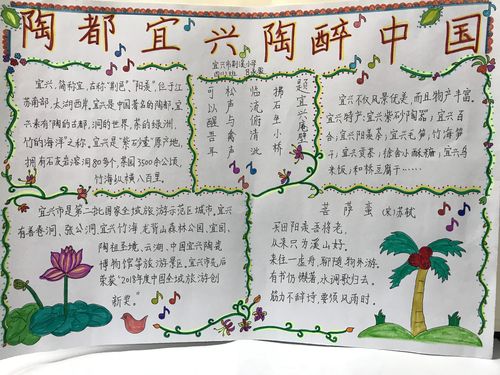 陶都宜兴陶醉中国
宜兴市荆溪小学
宜兴,简称宜,古称"荆邑"、"阳羡",位于江
苏南部,太湖西岸,宜兴是中国著名的陶都,宜
兴素有"陶的古都,洞的世界,茶的绿洲,
竹的海洋"之称。宜兴是"紫砂壶"原产地,
拥有石灰岩溶洞80多个,茶园7500余公顷,
竹海纵横八百里。
题宜兴庵壁
拂石坐小桥
临流俯清浅
松声与禽声
可以醒吾耳
宜兴不仅风景优美,而且物产丰富。
宜兴特产:宜兴紫砂陶器;宜兴百
合;宜兴阳羡茶;宜兴毛笋,竹海笋
干;宜兴贡茶;徐舍小酥糖;宜兴乌
米饭;和桥豆腐干……
宜兴市是第二批国家全域旅游示范区城市,宜兴
有善卷洞、张公洞、宜兴竹海、龙背山森林公园、宜园、
陶祖圣境、云湖、中国宜兴陶瓷
博物馆等旅游景区,宜兴市先后
荣获"2018年度中国全域旅游创
新奖。"
菩萨蛮 (宋)苏轼
买田阳羡吾将老,
从来只为溪山好。
来往一虚舟,聊随物外游。
有书仍懒著,水调歌归去。
筋力不辞诗,要须风雨时。